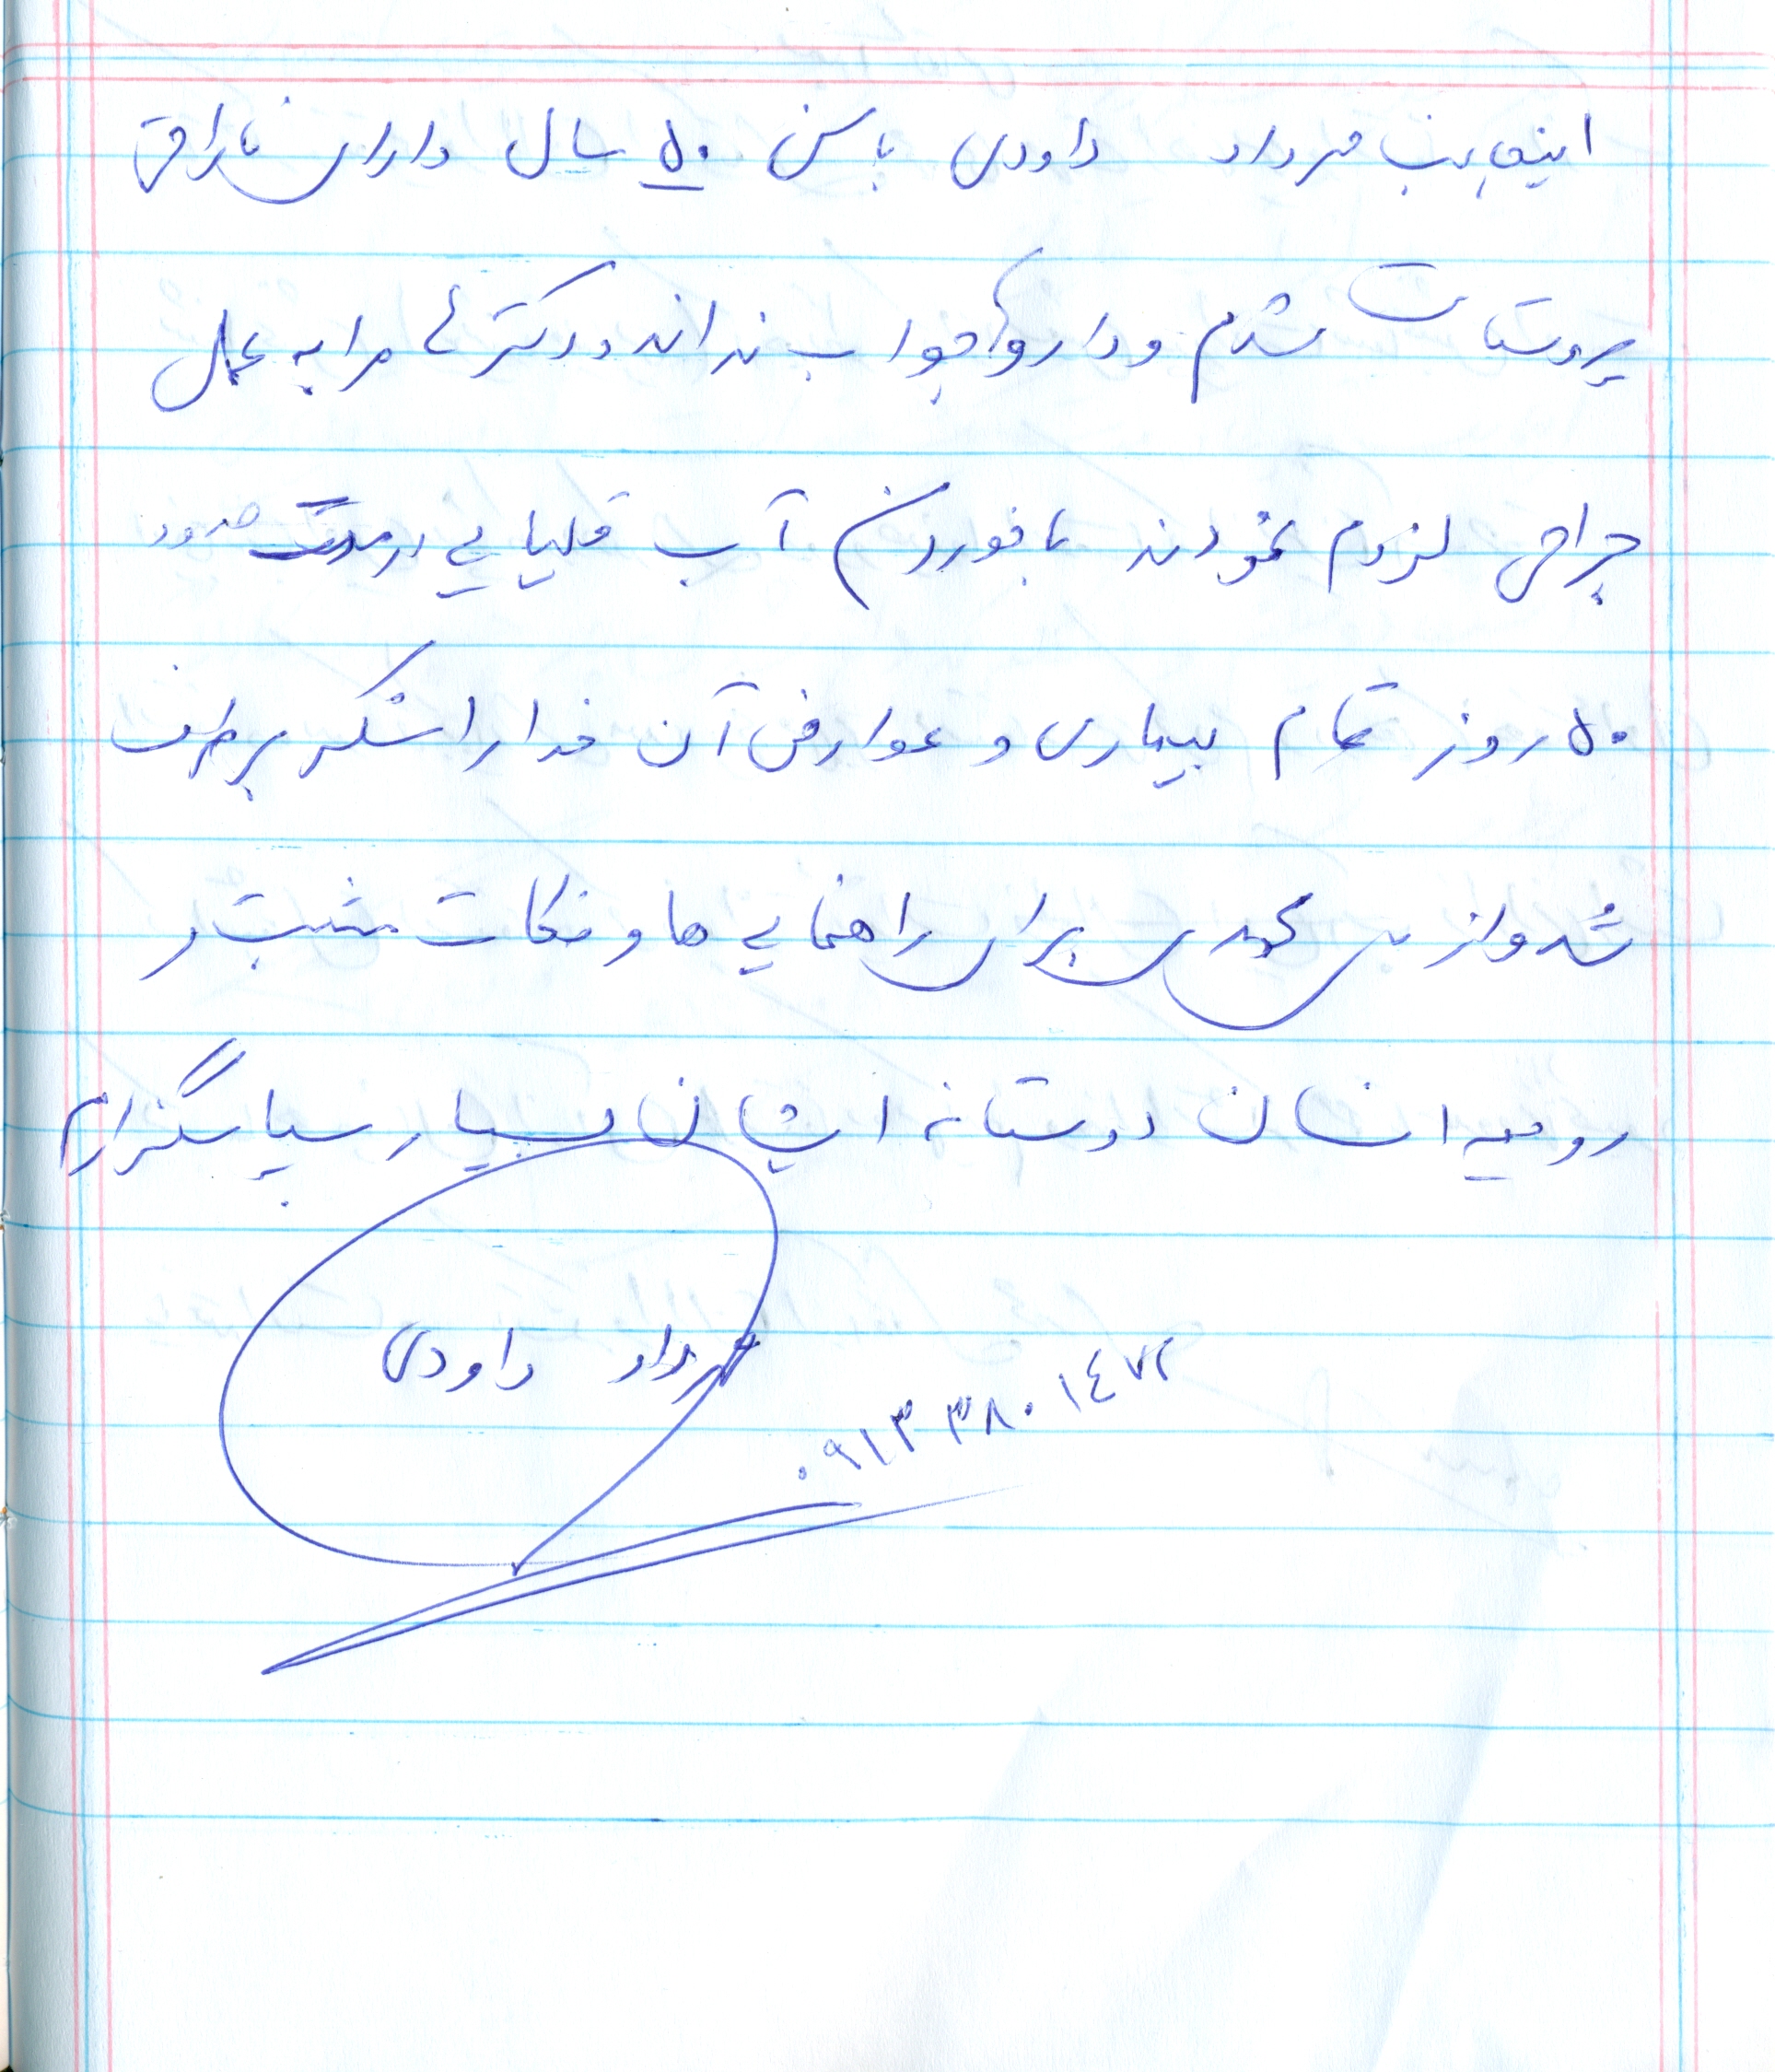 اینجانب مهرداد داودی با سن ۵۰ سال دارای ناراحتی
پروستات شدم و داروها جواب ندادند و دکترها مرا به عمل
جراحی لزوم نمودند با خوردن آب قلیایی در مدت حدود
۵۰ روز تمام بیماری و عوارض آن خدا را شکر برطرف
شد و از محمدی برای راهنمایی ها و نکات مثبت و
روحیه انسان دوستانه ایشان بسیار سپاسگزارم
مهرداد داودی
۰۹۱۳۳۸۰۱۴۷۲